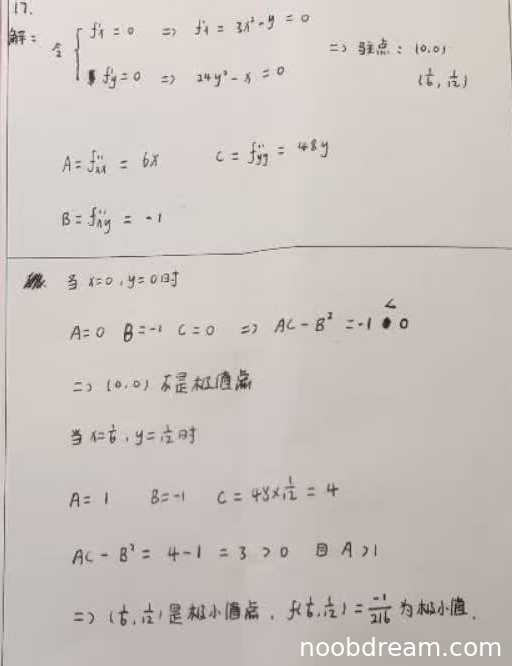 17.
解: 令 { f'x = 0 => f'x = 3x² - y = 0
f'y = 0 => 24y² - x = 0
=> 驻点: (0,0)
(1/6, 1/12)
A = f''xx = 6x C = f''yy = 48y
B = f''xy = -1
当 x=0, y=0时
A=0 B=-1 C=0 => AC-B² = -1 < 0
=> (0,0) 不是极值点
当 x=1/6, y=1/12时
A=1 B=-1 C=48×1/12=4
AC-B² = 4-1 = 3 > 0 且 A>1
=> (1/6, 1/12)是极小值点, f(1/6, 1/12) = -1/216 为极小值.
noobdream.com